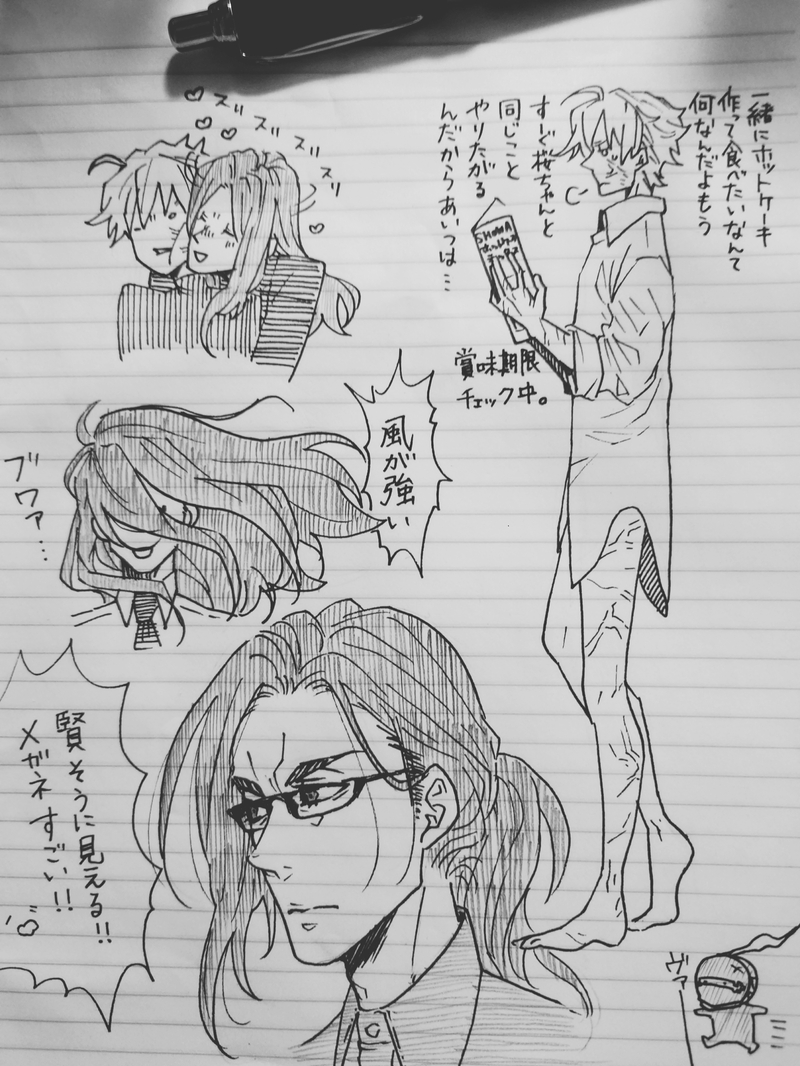 一緒にホットケーキ
作って食べたいなんて
何なんだよもう
すーぐ桜ちゃんと
同じこと
やりたがる
んだからあいつは…
SHOWA
賞味期限
チェック中。
ズリズリズリズリ
風が強い
ブワァ…
賢そうに見える!!
メガネすごい!!
ヴァー